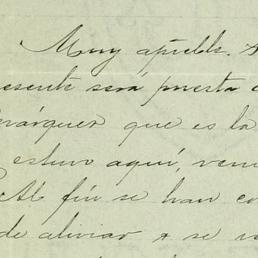 Muy apreble.
resente será puesta
márquez que es la
estuvo aquí, veni
Al fin se han co
de aliviar a se